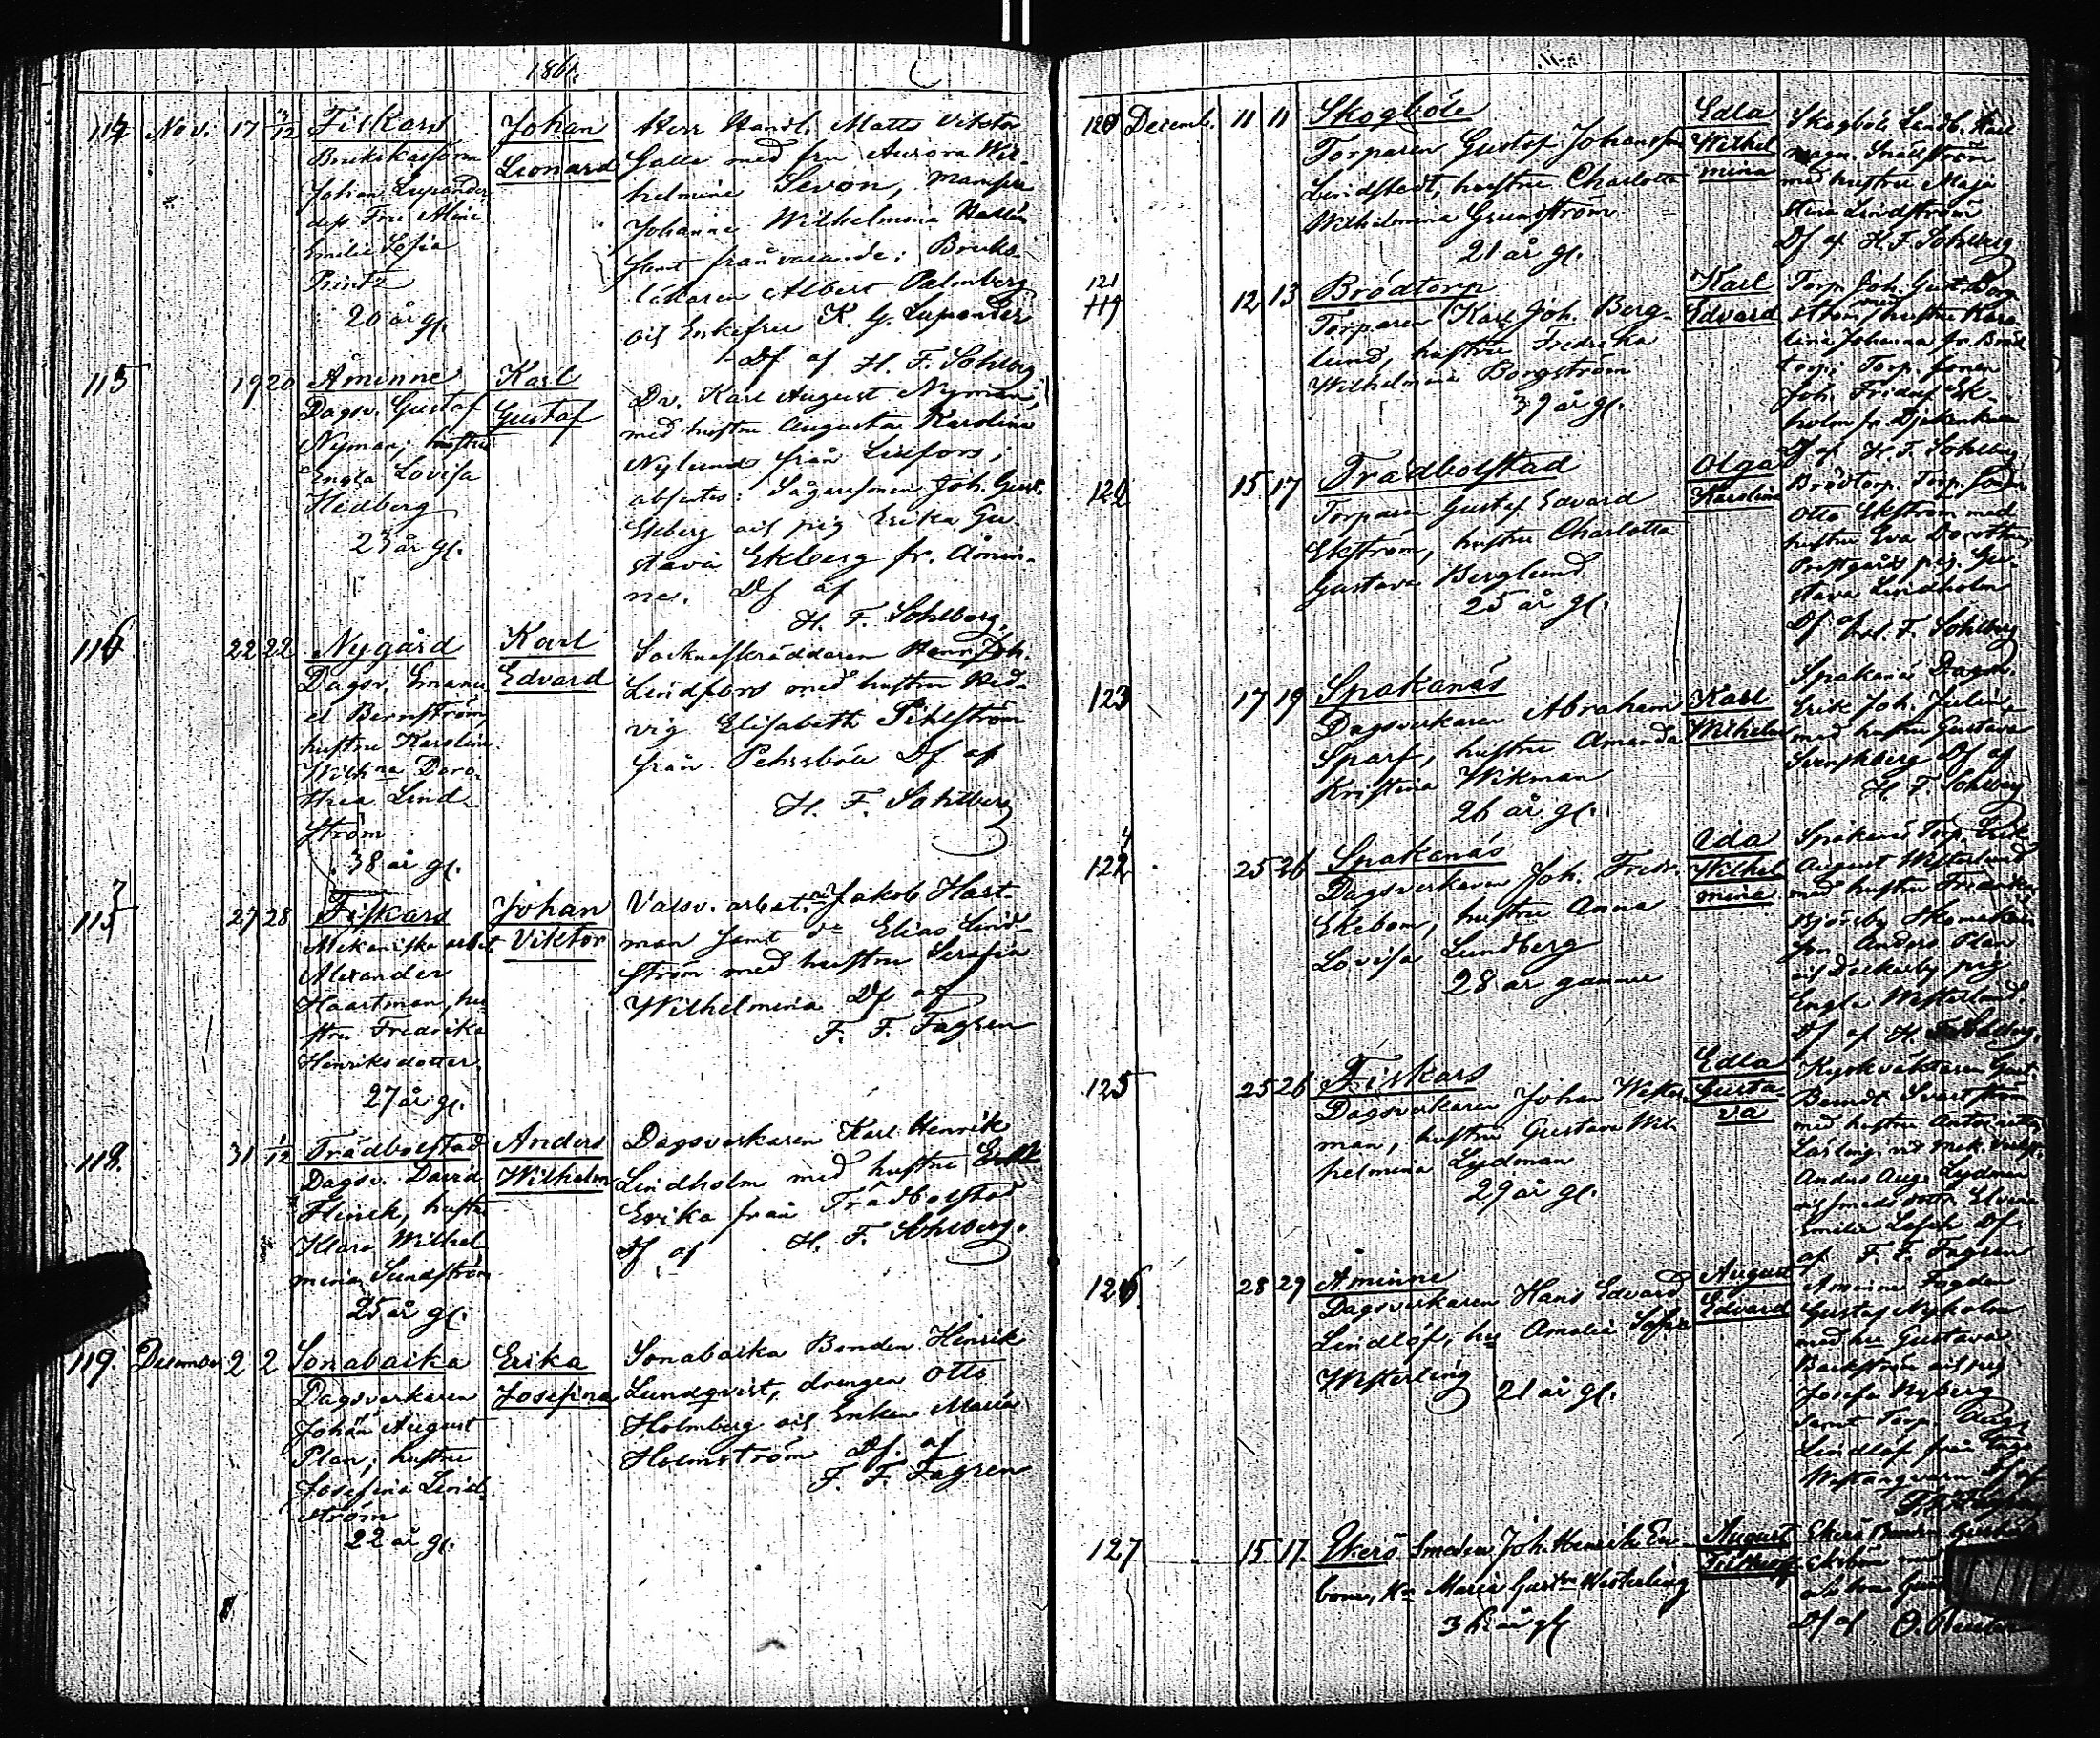 1861.
114 Nov. 17 4/12 Fiskars
Brukskassören
Johan Lupander
dess Fru Aline
Emilie Sofia
Printz
20 år gl.
Johan
Leonard
Herr Handl. Matts Viktor
Galle med fru Aurora Wil-
helmina Sevon, mamsell
Johanna Wilhelmina
samt frånvarande: Bruks-
läkaren Albert Palmberg
och Enkefru K. G. Lupander
Df af H. F. Sohlberg
115 19 20 Åminne
Dagsv. Gustaf
Nyman; hustru
Engla Lovisa
Hedberg
23 år gl.
Karl
Gustaf
Dv. Karl August Nyman,
med hustru Augusta Karolina
Nylund från Lixfors;
absentes: Sågaresonen Joh. Gust.
Ekberg och pig Erika Gu-
stava Ekberg fr. Åmin-
ne. Df af
H. F. Sohlberg.
116 22 22 Nygård
Dagsv. Emanu-
el Bernström,
hustru Karolina
Wilhna Doro-
thea Lind-
ström
38 år gl.
Karl
Edvard
Sockneskräddaren Henr. Joh.
Lindfors med hustru Hed-
vig Elisabeth Pihlström
från Pehrsböle Df af
H. F. Sohlberg
117 27 28 Fiskars
Mekaniska arbet.
Alexander
Haartman, hu-
stru Fredrika
Henriksdotter
27 år gl.
Johan
Viktor
Valsv. arbet. Jakob Hart-
man samt do Elias Lind-
ström med hustru Serafia
Wilhelmina Df af
F. F. Fagren
118. 31 1/12 Trädbolstad
Dagsv. David
Flinck, hustru
Klara Wilhel
mina Sundström
25 år gl.
Anders
Wilhelm
Dagsverkaren Karl Henrik
Lindholm med hustru
Erika från Trädbolstad
Df af H. F. Sohlberg.
119. December 2 2 Sonabacka
Dagsverkaren
Johan August
Plan; hustru
Josefina Lind-
ström
22 år gl.
Erika
Josefina
Sonabacka Bonden Henrik
Lundqvist, drengen Otto
Holmberg och Enkan Maria
Holmström Df. af
F. F. Fagren
120 Decemb. 11 11 Skogböle
Torparen Gustaf Johansson
Lindstedt, hustru Charlotta
Wilhelmina Grundström
21 år gl.
Edla
Wilhel
mina
Skogböle Landb. Karl
Magn.
med hustru Maja
Stina Lindström
Df af H. F. Sohlberg
121
119 12 13 Brödtorp
Torparen Karl Joh. Berg-
lund, hustru Fredrika
Wilhelmina Borgström
39 år gl.
Karl
Edvard
Torp. Joh. Gust. Borg
ström med hustru Karo-
lina Johanna fr. Bröd
torp; Torp. sonen
Joh. Fridolf Ek-
holm fr.
Df af H. F. Sohlberg
122 15 17 Trädbolstad
Torparen Gustaf Edvard
Ekström, hustru Charlotta
Gustava Berglund
25 år gl.
Olga
Karolina
Brödtorp. Torp. sonen
Otto Ekström med
hustru Eva Dorothea;
Prestgårds pig. Gu-
stava Lindholm
Df af H. F. Sohlberg
123 17 19 Spakanäs
Dagsverkaren Abraham
Sparf, hustru Amanda
Kristina Wikman
26 år gl.
Karl
Wilhelm
Spakanäs Dagsv.
Erik Joh. Julin
med hustru Gustava
Svenskberg Df af
H. F. Sohlberg
4
122 25 26 Spakanäs
Dagsverkaren Joh. Fredr.
Ekebom, hustru Anna
Lovisa Lundberg
28 år gamme
Ida
Wilhel
mina
Spakanäs Torp. Erik
August Westerlund
med hustru Fredrika;
Björsby Skomakare
son Anders Plan
och Dalkarby pig
Engla Westerlund.
Df af H. F. Sohlberg.
125 25 26 Fiskars
Dagsverkaren Johan Wester-
man, hustru Gustava Wil-
helmina Lydman
29 år gl.
Edla
Gusta-
va
Kyrkväktaren Gust.
Berndt Svartström
med hustru
Lärling vid mek. verkst.
Anders Aug. Lydman
och smeds dottr. Elvira
Emilia Df.
af F. F. Fagren
126 28 29 Åminne
Dagsverkaren Hans Edvard
Lindlöf, hu Amalia Sofia
Westerling 21 år gl.
August
Edvard
Åminne
Gustaf Nyholm
med hu Gustava
Backström och pig
Josefa Nyberg
samt Torp.
Lindlöf från
Df af
127 15 17. Ekerö Smeden Joh. Henrik Eke-
bom, Ha Maria Gustva Westerling
36 år gl
August
Fridolf
Ekerö Bonden Gustaf
med
Df af O.